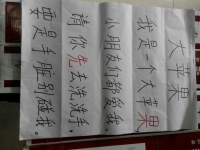 大苹果
我是一个大苹果
小朋友们都爱我。
请你先去洗洗手
要是手脏别碰我。